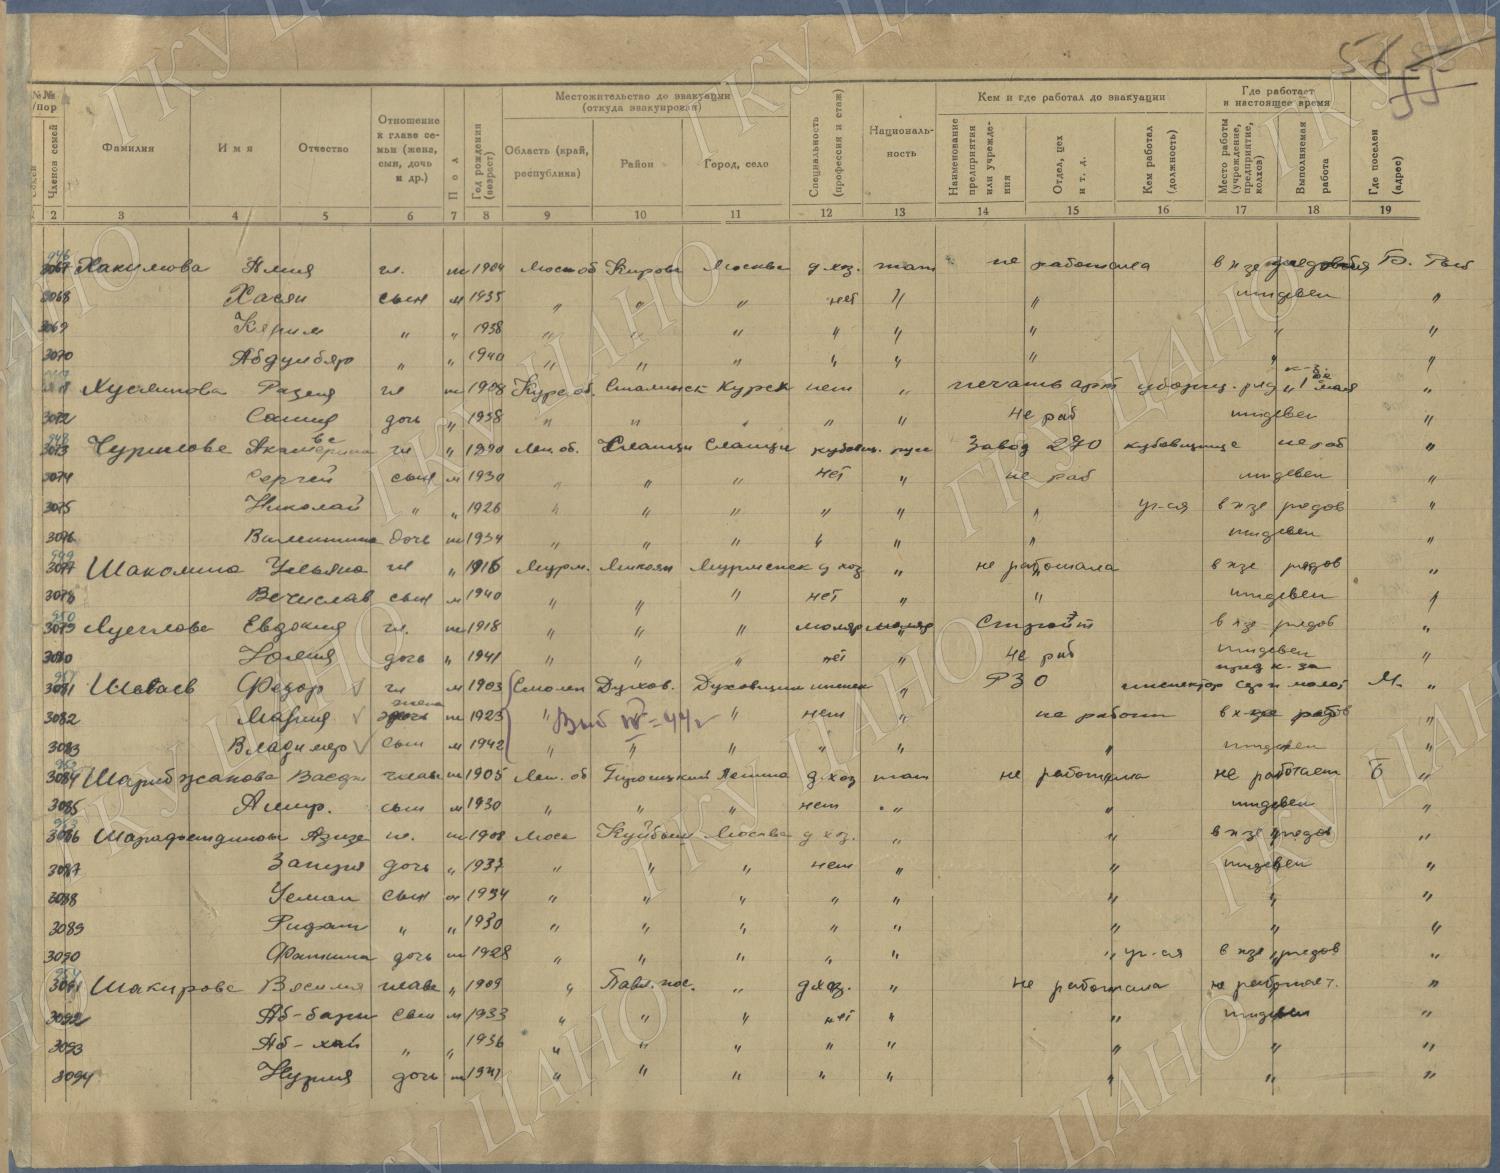 56
№№ п/пор
Членов семей
Фамилия
Имя
Отчество
Отношение к главе семьи (жена, сын, дочь и др.)
Пол
Год рождения (возраст)
Местожительство до эвакуации (откуда эвакуирован)
Область (край, республика)
Район
Город, село
Специальность (профессия и стаж)
Националь-ность
Кем и где работал до эвакуации
Наименование предприятия или учрежде-ния
Отдел, цех и т. д.
Кем работал (должность)
Где работает в настоящее время
Место работы (учреждение, предприятие, колхоз)
Выполняемая работа
Где поселен (адрес)
2 3 4 5 6 7 8 9 10 11 12 13 14 15 16 17 18 19
946
3067 Хакимова Алия гл. ж 1904 Моск об Киров Москва д хоз. тат не работала в к-зе рядовая Б. Рыб
3068 Хасян сын м 1935 " " " нет " " иждевен "
3069 Керим " " 1938 " " " " " " " "
3070 Абдулбяр " " 1940 " " " " " " " "
Хуснятова Разия гл ж 1908 Курс. об. Сталинск Курск нет " печать арт уборщ. ряд 1 мая "
3072 Сания дочь " 1938 " " " " не раб иждевен "
948
3073 Чурилова Екатерина гл " 1890 Лен об. Сланцы Сланцы кубовщ. русс Завод 270 кубовщице не раб "
3074 Сергей сын м 1930 " " " нет " не раб иждевен "
3075 Николай " " 1926 " " " " " " уч-ся в к-зе рядов "
3076 Валентина дочь ж 1934 " " " " " " иждевен "
949
3077 Шаколина Ульяна гл " 1916 Мурм. Микоян Мурманск д хоз " не работала в к-зе рядов "
3078 Вечислав сын м 1940 " " " нет " " иждевен "
950
3079 Евдокия гл. ж 1918 " " " маляр " Стройт в к-зе рядов "
3080 Юлия дочь " 1941 " " " нет " не раб иждевен "
951
3081 Шаваев Федор гл м 1903 Смолен Духов. Духовщина инспек " РЗО инспектор пред к-за Серп и молот М. "
3082 Мария жена ж 1923 " " нет " не работ в к-зе рядов "
Выб IV-44г
3083 Владимер сын м 1942 " " " " " " иждевен "
952
3084 Шарибжанова Васди глава ж 1905 Лен. об Троицкий Ленина д.хоз тат не работала не работает Б "
3085 Амир. сын м 1930 " " " нет " " иждевен "
953
3086 Азизе гл. ж 1908 Моск Куйбыш Москва д хоз. " " в к-зе рядов "
3087 дочь " 1937 " " " нет " " иждевен "
3088 Усман сын м 1934 " " " " " " " "
3089 Ридат " " 1930 " " " " " " " "
3090 Фатима дочь ж 1928 " " " " " " уч-ся в к-зе рядов "
954
3091 Шакирова Василя глава " 1909 " Павл. пос. " д.хоз. " не работала не работает. "
3092 Аб-бари сын м 1933 " " " нет " " иждевен "
3093 Аб-хай " " 1936 " " " " " " " "
3094 Нурия дочь ж 1941 " " " " " " " "
ГКУ ЦАНО